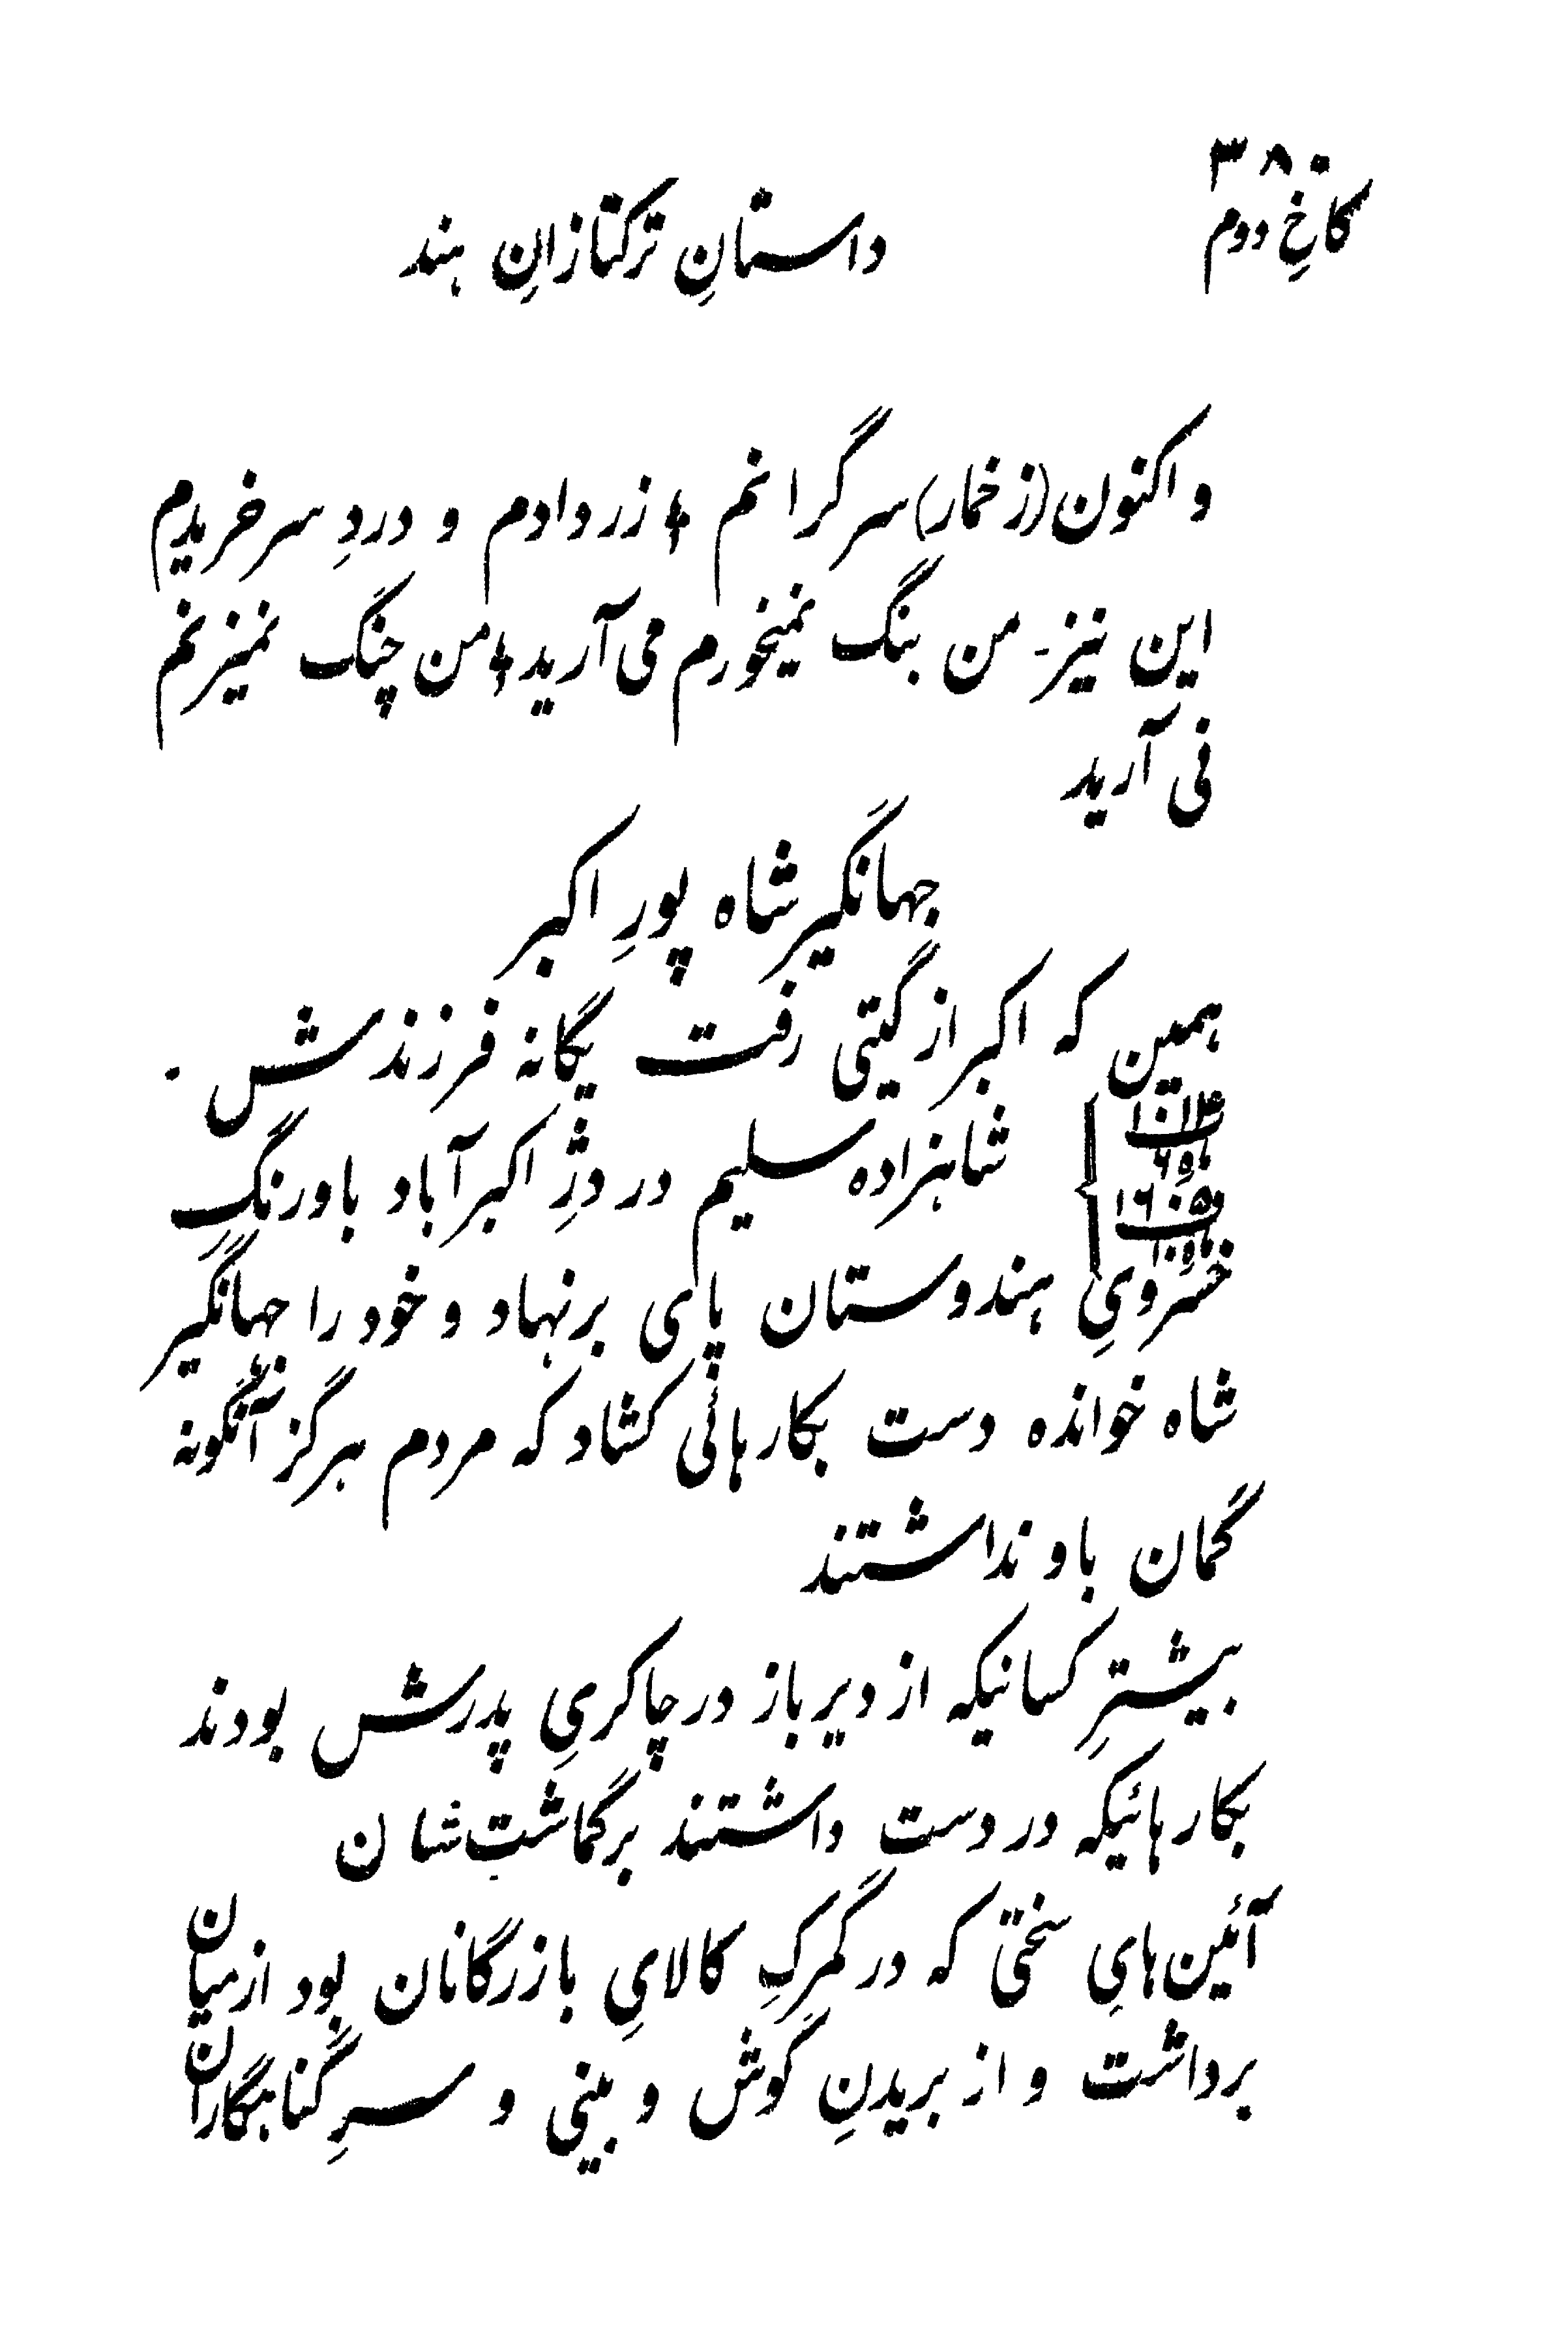 ۳۸۰
کاخِ دوم
داستانِ ترکتازانِ هند
و اکنون (ز خمار) سر گرانم ٭ زر دادم و دردِ سر خریدم
این نیز - من بنگ نمیخورم می آرید ٭ من چنگ نمیزنم
نی آرید
جهانگیر شاه پورِ اکبر
همین که اکبر از گیتی رفت یگانه فرزندش
شاهزاده سلیم در دژِ اکبرآباد باورنگِ
خسرویِ هندوستان پای برنهاد و خود را جهانگیر
شاه خوانده دست بکارهائی کشاد که مردم هرگز آنگونه
گمان باو نداشتند
بیشترِ کسانیکه از دیر باز در چاکریِ پدرش بودند
بکارهائیکه در دست داشتند برگماشت شان
آئین هایِ سختی که در گمرکِ کالایِ بازرگانان بود از میان
برداشت و از بریدنِ گوش و بینی و سرِ گناهگاران